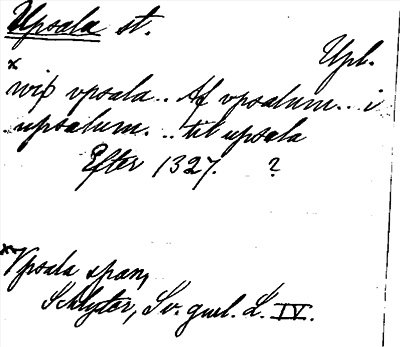 Upsala st.
Upl.
x
wiþ vpsala.. Af vpsalum... i
upsalum. .. til upsala
Efter 1327. ?
x Vpsala span,
Schlyter, Sv. gml. L. IV.